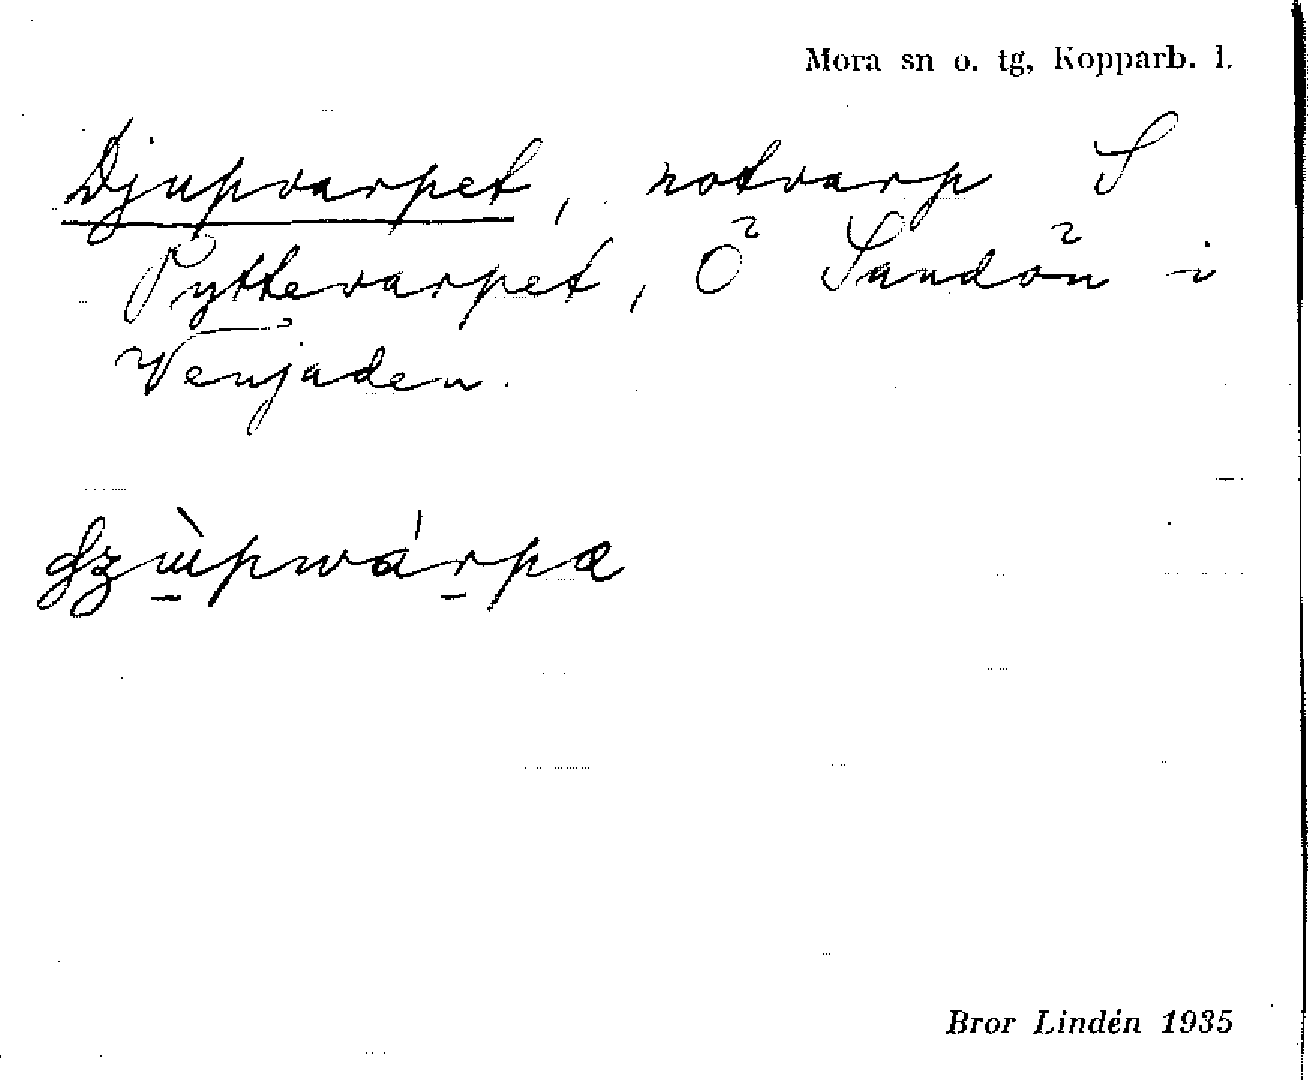 Mora sn o. tg, Kopparb. l.
Djupvarpet, notvarp S
Pyttevarpet, Ö Sandön i
Venjaden.
Bror Lindén 1935